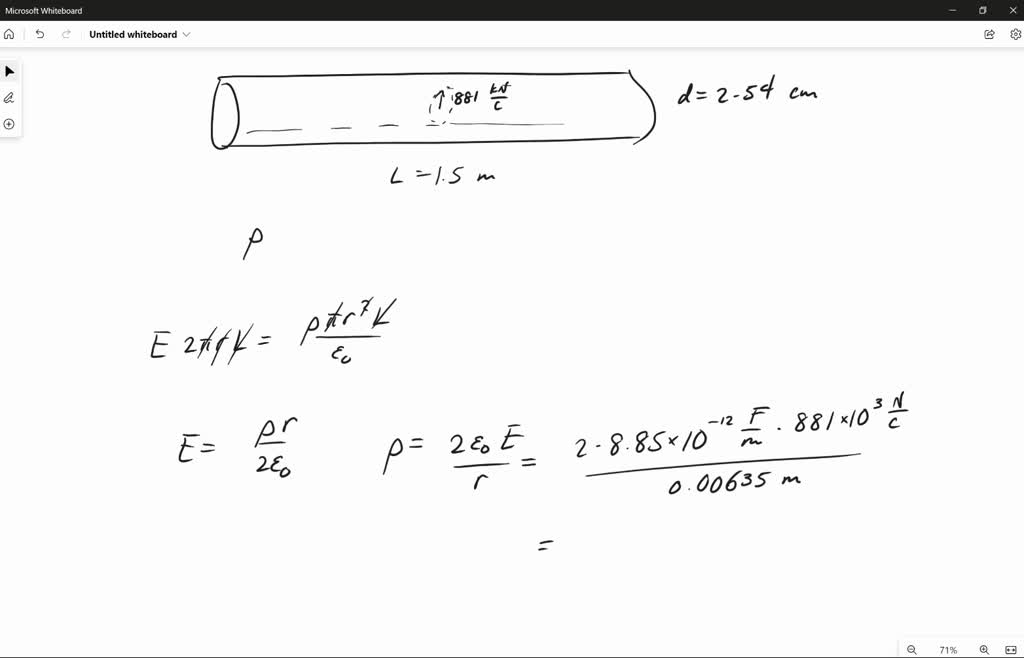 Microsoft Whiteboard
Untitled whiteboard
881 kN/C
d = 2.54 cm
L = 1.5 m
ρ
E 2πrL = ρπr²L/ε₀
E = ρr/2ε₀
ρ = 2ε₀E/r = 2·8.85×10⁻¹² F/m · 881×10³ N/C / 0.00635 m
=
71%